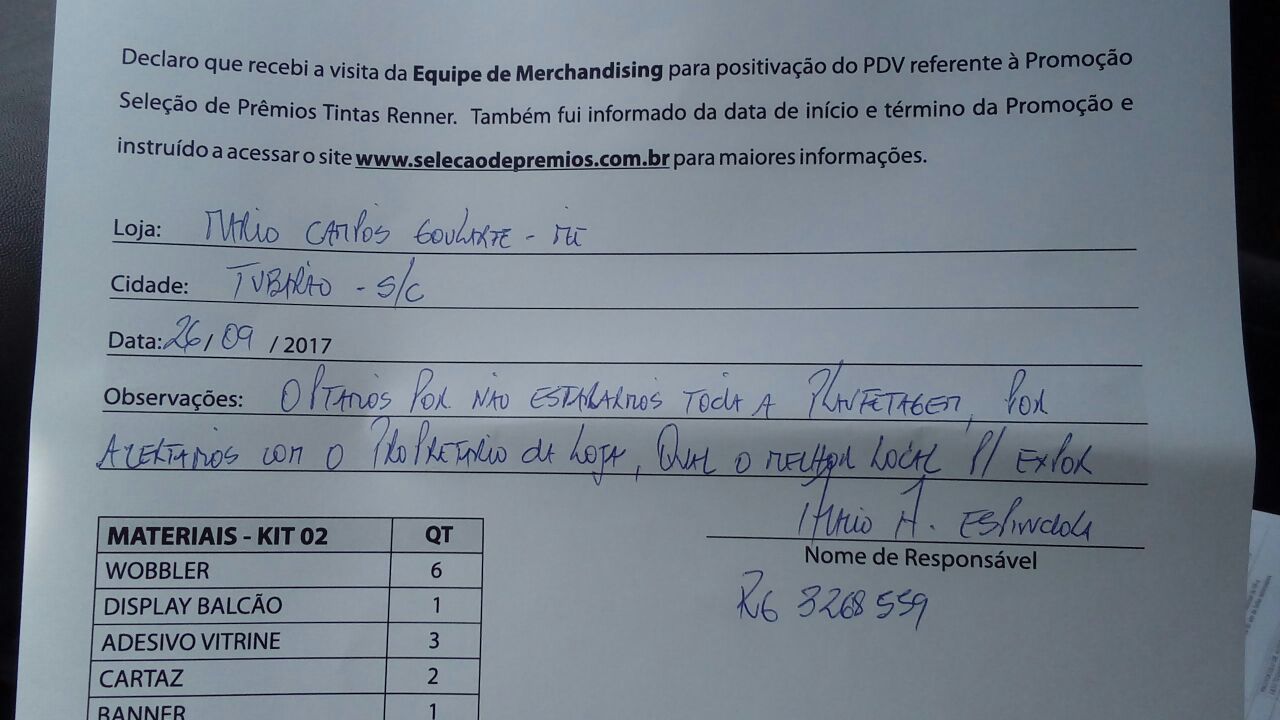 Declaro que recebi a visita da Equipe de Merchandising para positivação do PDV referente à Promoção
Seleção de Prêmios Tintas Renner. Também fui informado da data de início e término da Promoção e
instruído a acessar o site www.selecaodepremios.com.br para maiores informações.
Loja: MARIO CAMPOS GOULARTE - ME
Cidade: TUBARÃO - S/C
Data: 26/09/2017
Observações: OPTAMOS POR NÃO TODA A POR
COM O PROPRETARIO DA LOJA, QUAL O MELHOR LOCAL P/ EXPOR
MARIO A. ESPINDOLA
Nome de Responsável
RG 3268559
MATERIAIS - KIT 02 QT
WOBBLER 6
DISPLAY BALCÃO 1
ADESIVO VITRINE 3
CARTAZ 2
BANNER 1